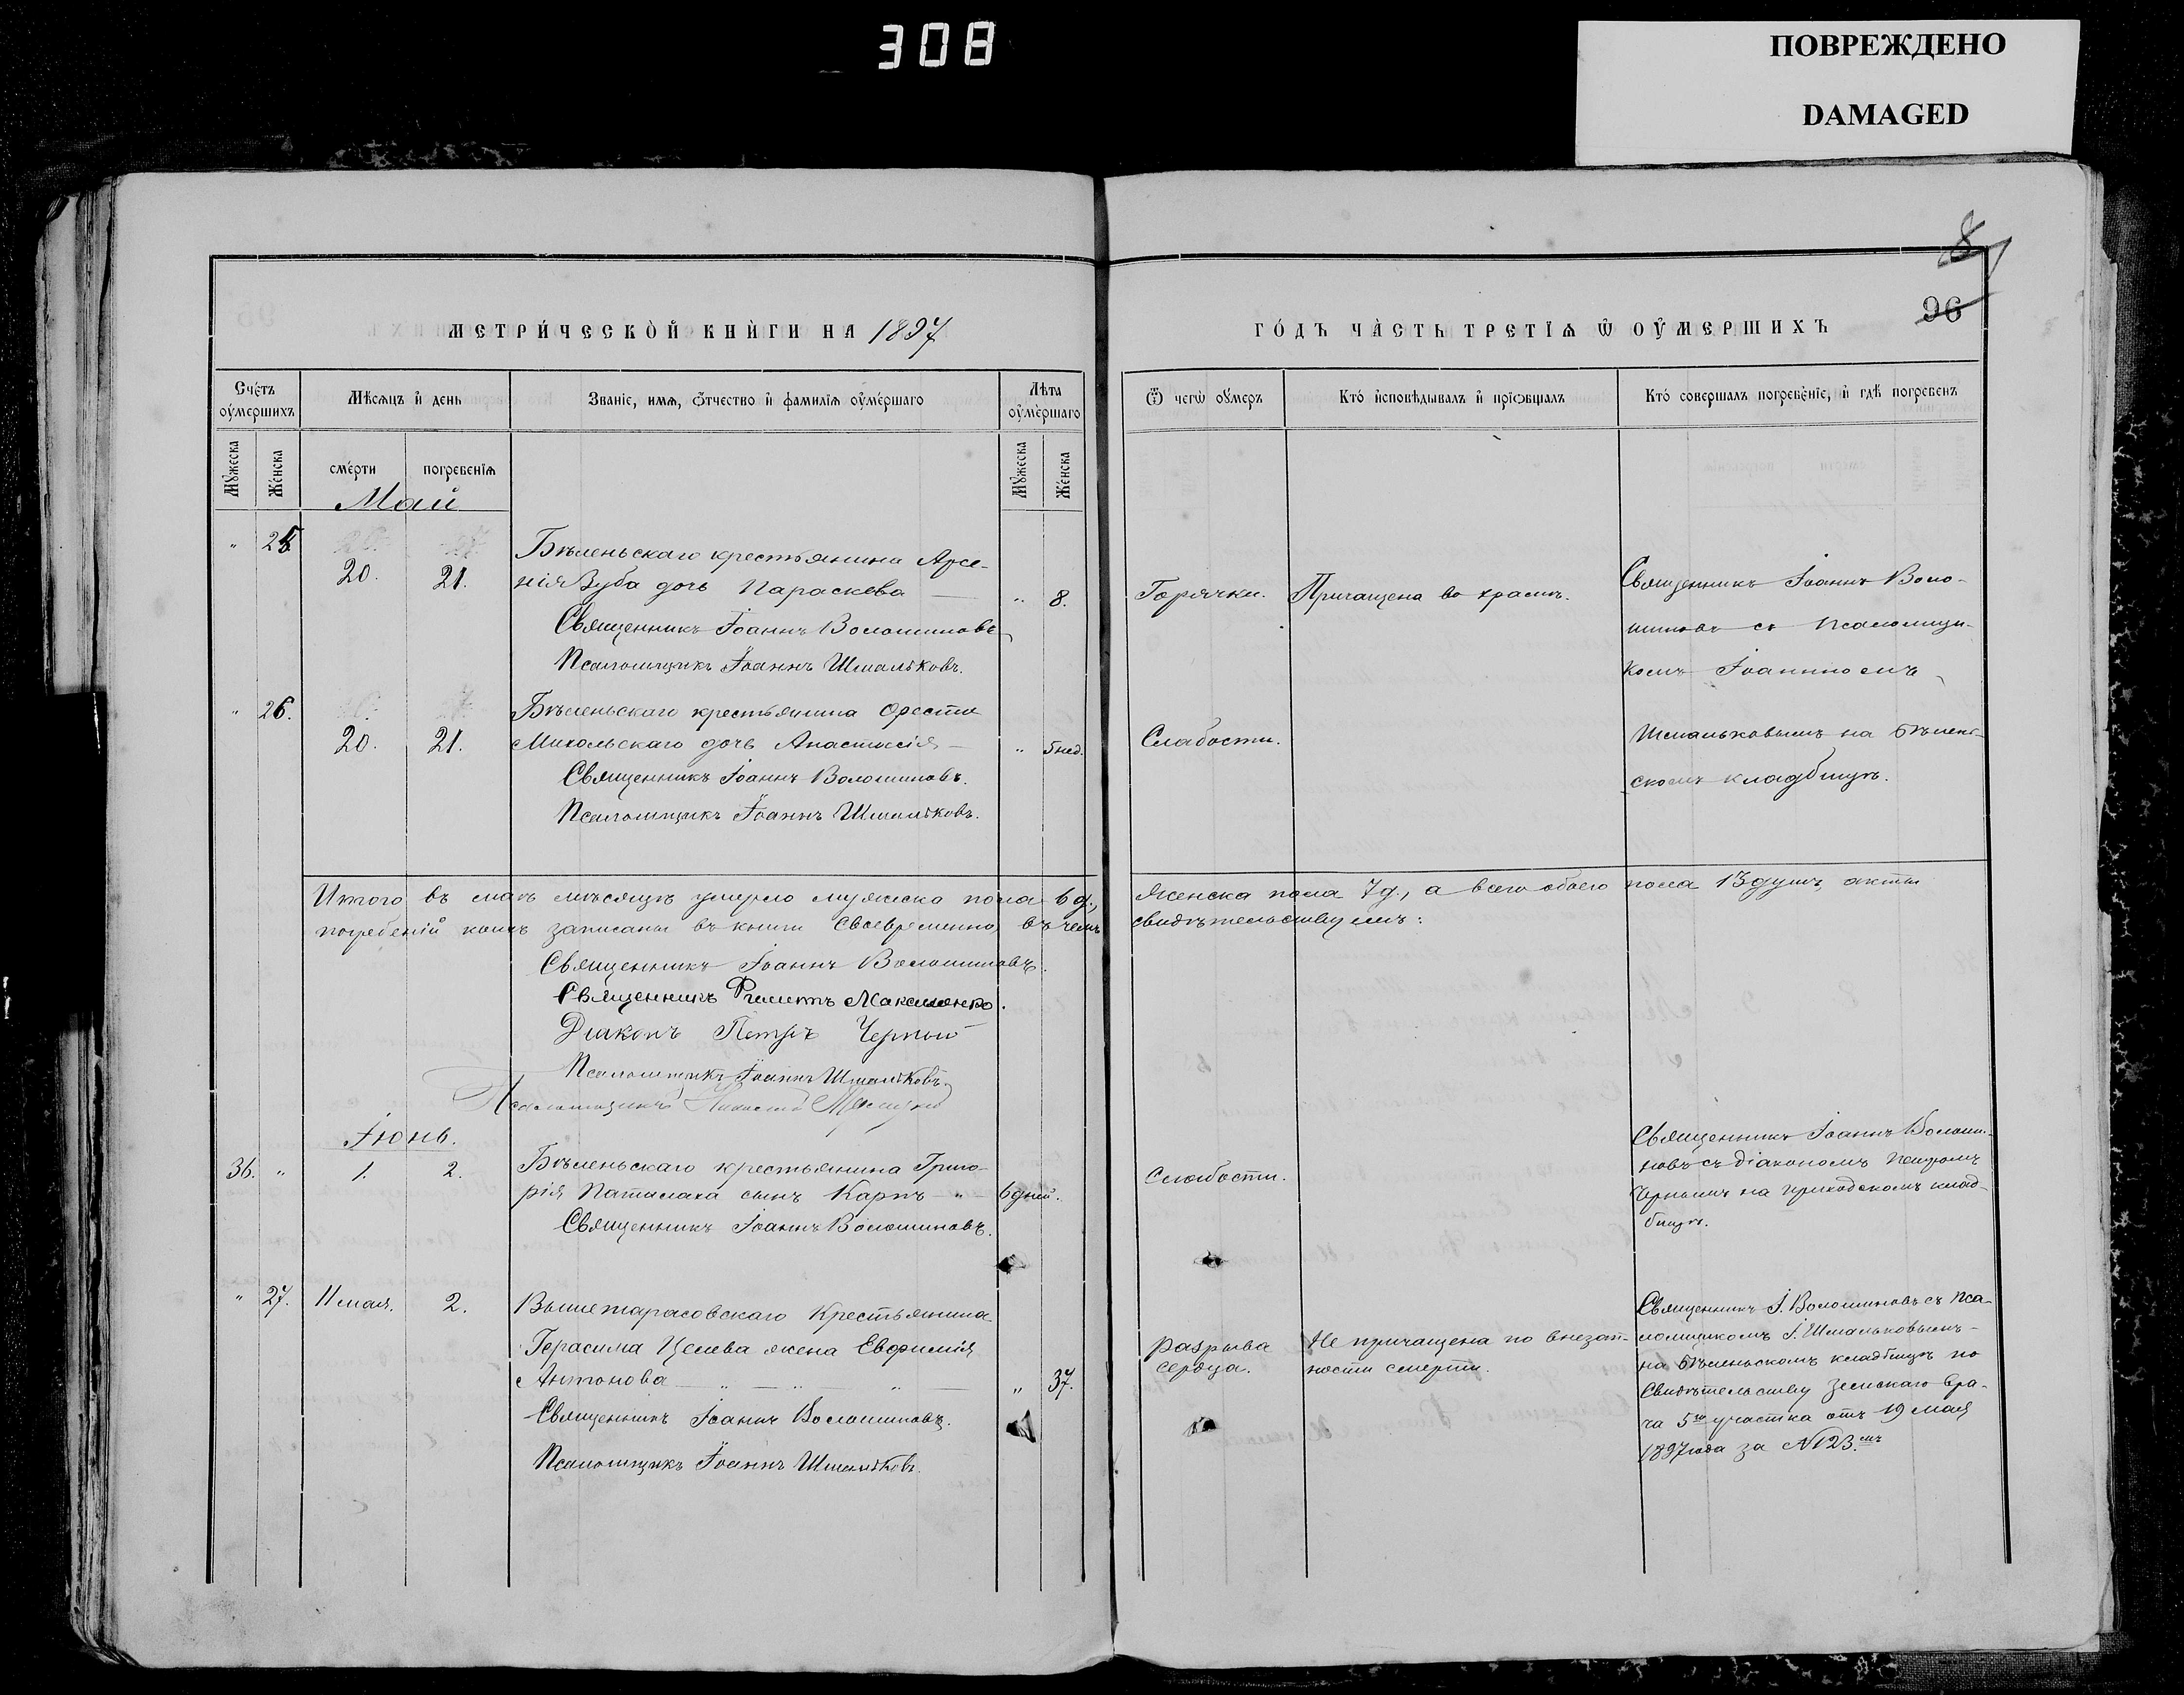 308
ПОВРЕЖДЕНО
DAMAGED
8
96
МЕТРИ́ЧЕСКОЙ КНИ́ГИ НА 1897
ГО́ДЪ ЧА́СТЬ ТРЕТІѦ Ѿ ОУ҆МЕРШИХЪ
Счетъ оу҆мершихъ
Мѣсѧцъ и҆ день
Званіе, имѧ, ѿчество и҆ фамиліѧ оу҆ме́ршаго
Лѣта оу҆ме́ршаго
Ѿ чегѡ оу҆меръ
Кто́ и҆сповѣдывалъ и҆ прїѡбщалъ
Кто́ совершалъ погребе́ніе, и҆ гдѣ погребенъ
Мꙋжеска
Же́нска
сме́рти
погребеніѧ
Мꙋжеска
Же́нска
Май
" 25. 20. 21.
Бѣленьскаго крестьянина Арсе-
нія Зуба дочь Параскева " 8.
Священникъ Іоаннъ Волошиновъ
Псаломщикъ Іоаннъ Шмальковъ.
Горячки.
Причащена во храмѣ.
Священникъ Іоаннъ Воло-
шиновъ съ Псаломщи-
комъ Іоанномъ
Шмальковымъ на Бѣлень-
скомъ кладбищѣ.
" 26. 20. 21.
Бѣленьскаго крестьянина Ореста
Михольскаго дочь Анастасія " 5 нед.
Священникъ Іоаннъ Волошиновъ.
Псаломщикъ Іоаннъ Шмальковъ.
Слабости.
Итого въ маѣ мѣсяцѣ умерло мужеска пола 6 д., женска пола 7 д., а всего обоего пола 13 душъ, акты
погребеній коихъ записаны въ книги своевременно въ чемъ свидѣтельствуемъ:
Священникъ Іоаннъ Волошиновъ.
Священникъ Максименко.
Діаконъ Петръ Черный
Псаломщикъ Іоаннъ Шмальковъ.
Псаломщикъ
Іюнь.
36. " 1. 2.
Бѣленьскаго крестьянина Григо-
рія Паталаха сынъ Карпъ " 6 дней.
Священникъ Іоаннъ Волошиновъ.
Слабости.
Священникъ Іоаннъ Волоши-
новъ съ діакономъ Петромъ
Чернымъ на приходскомъ клад-
бищѣ.
" 27. 11 мая. 2.
Вышетарасовскаго Крестьянина
Герасима Целева жена Евфимія
Антонова " " " " 37.
Священникъ Іоаннъ Волошиновъ.
Псаломщикъ Іоаннъ Шмальковъ.
Разрыва
сердца.
Не причащена по внезап-
ности смерти.
Священникъ І. Волошиновъ съ Пса-
ломщикомъ І. Шмальковымъ
на Бѣленьскомъ кладбищѣ по
Свидѣтельству земскаго вра-
ча 5го участка отъ 19 мая
1897 года за № 123.мъ